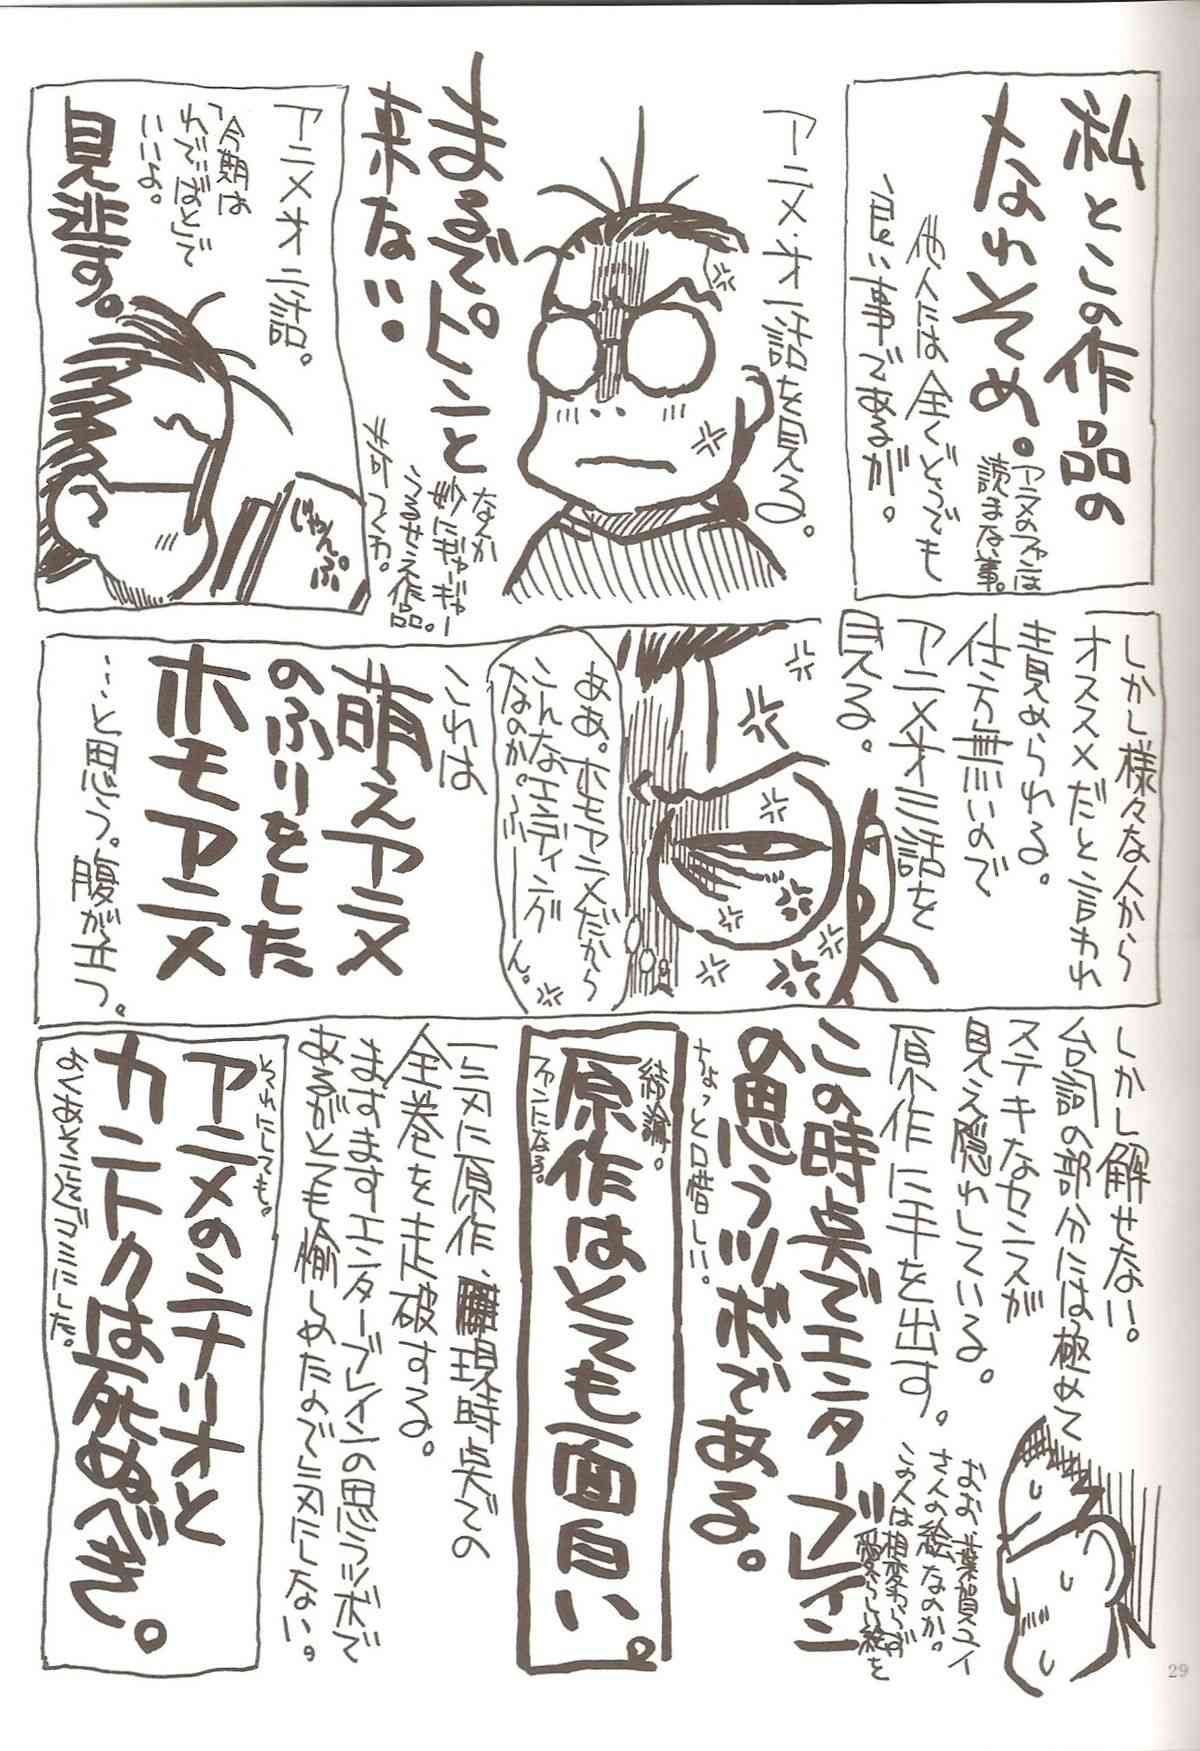 私とこの作品の
なれそめ。
アニメのファンは
読まない事。
他人には全くどうでも
良い事であるが。
アニメ・オ一話を見る。
まるでピンと
来ない。
なんか
妙にギャーギャー
うるせえ作品。
アニメオ二話。
「今期は
いいよ。
見逃す。
じゃんぷ
しかし様々な人から
オススメだと言われ
責められる。
仕方無いので
アニメオ三話を
見る。
ああ。ホモアニメだから
こんなエンディング
なのか。ふーーん。
これは
萌えアニメ
のふりをした
ホモアニメ
…と思う。腹が立つ。
しかし解せない。
台詞の部分には極めて
ステキなセンスが
見え隠れしている。
原作に手を出す。
おお、蒼賀ユイ
さんの絵なのか。
この人は相変わらず
愛らしい絵を
この時点でエンターブレイン
の思うツボである。
ちょっと口惜しい。
結論。
原作はとても面白い。
ファンになる。
一気に原作、現時点での
全巻を走破する。
ますますエンターブレインの思うツボで
あるがとても愉しめたので気にしない。
それにしても。
アニメのシナリオと
カントクは死ぬべき。
よくもあそこまでゴミにしたな。
29